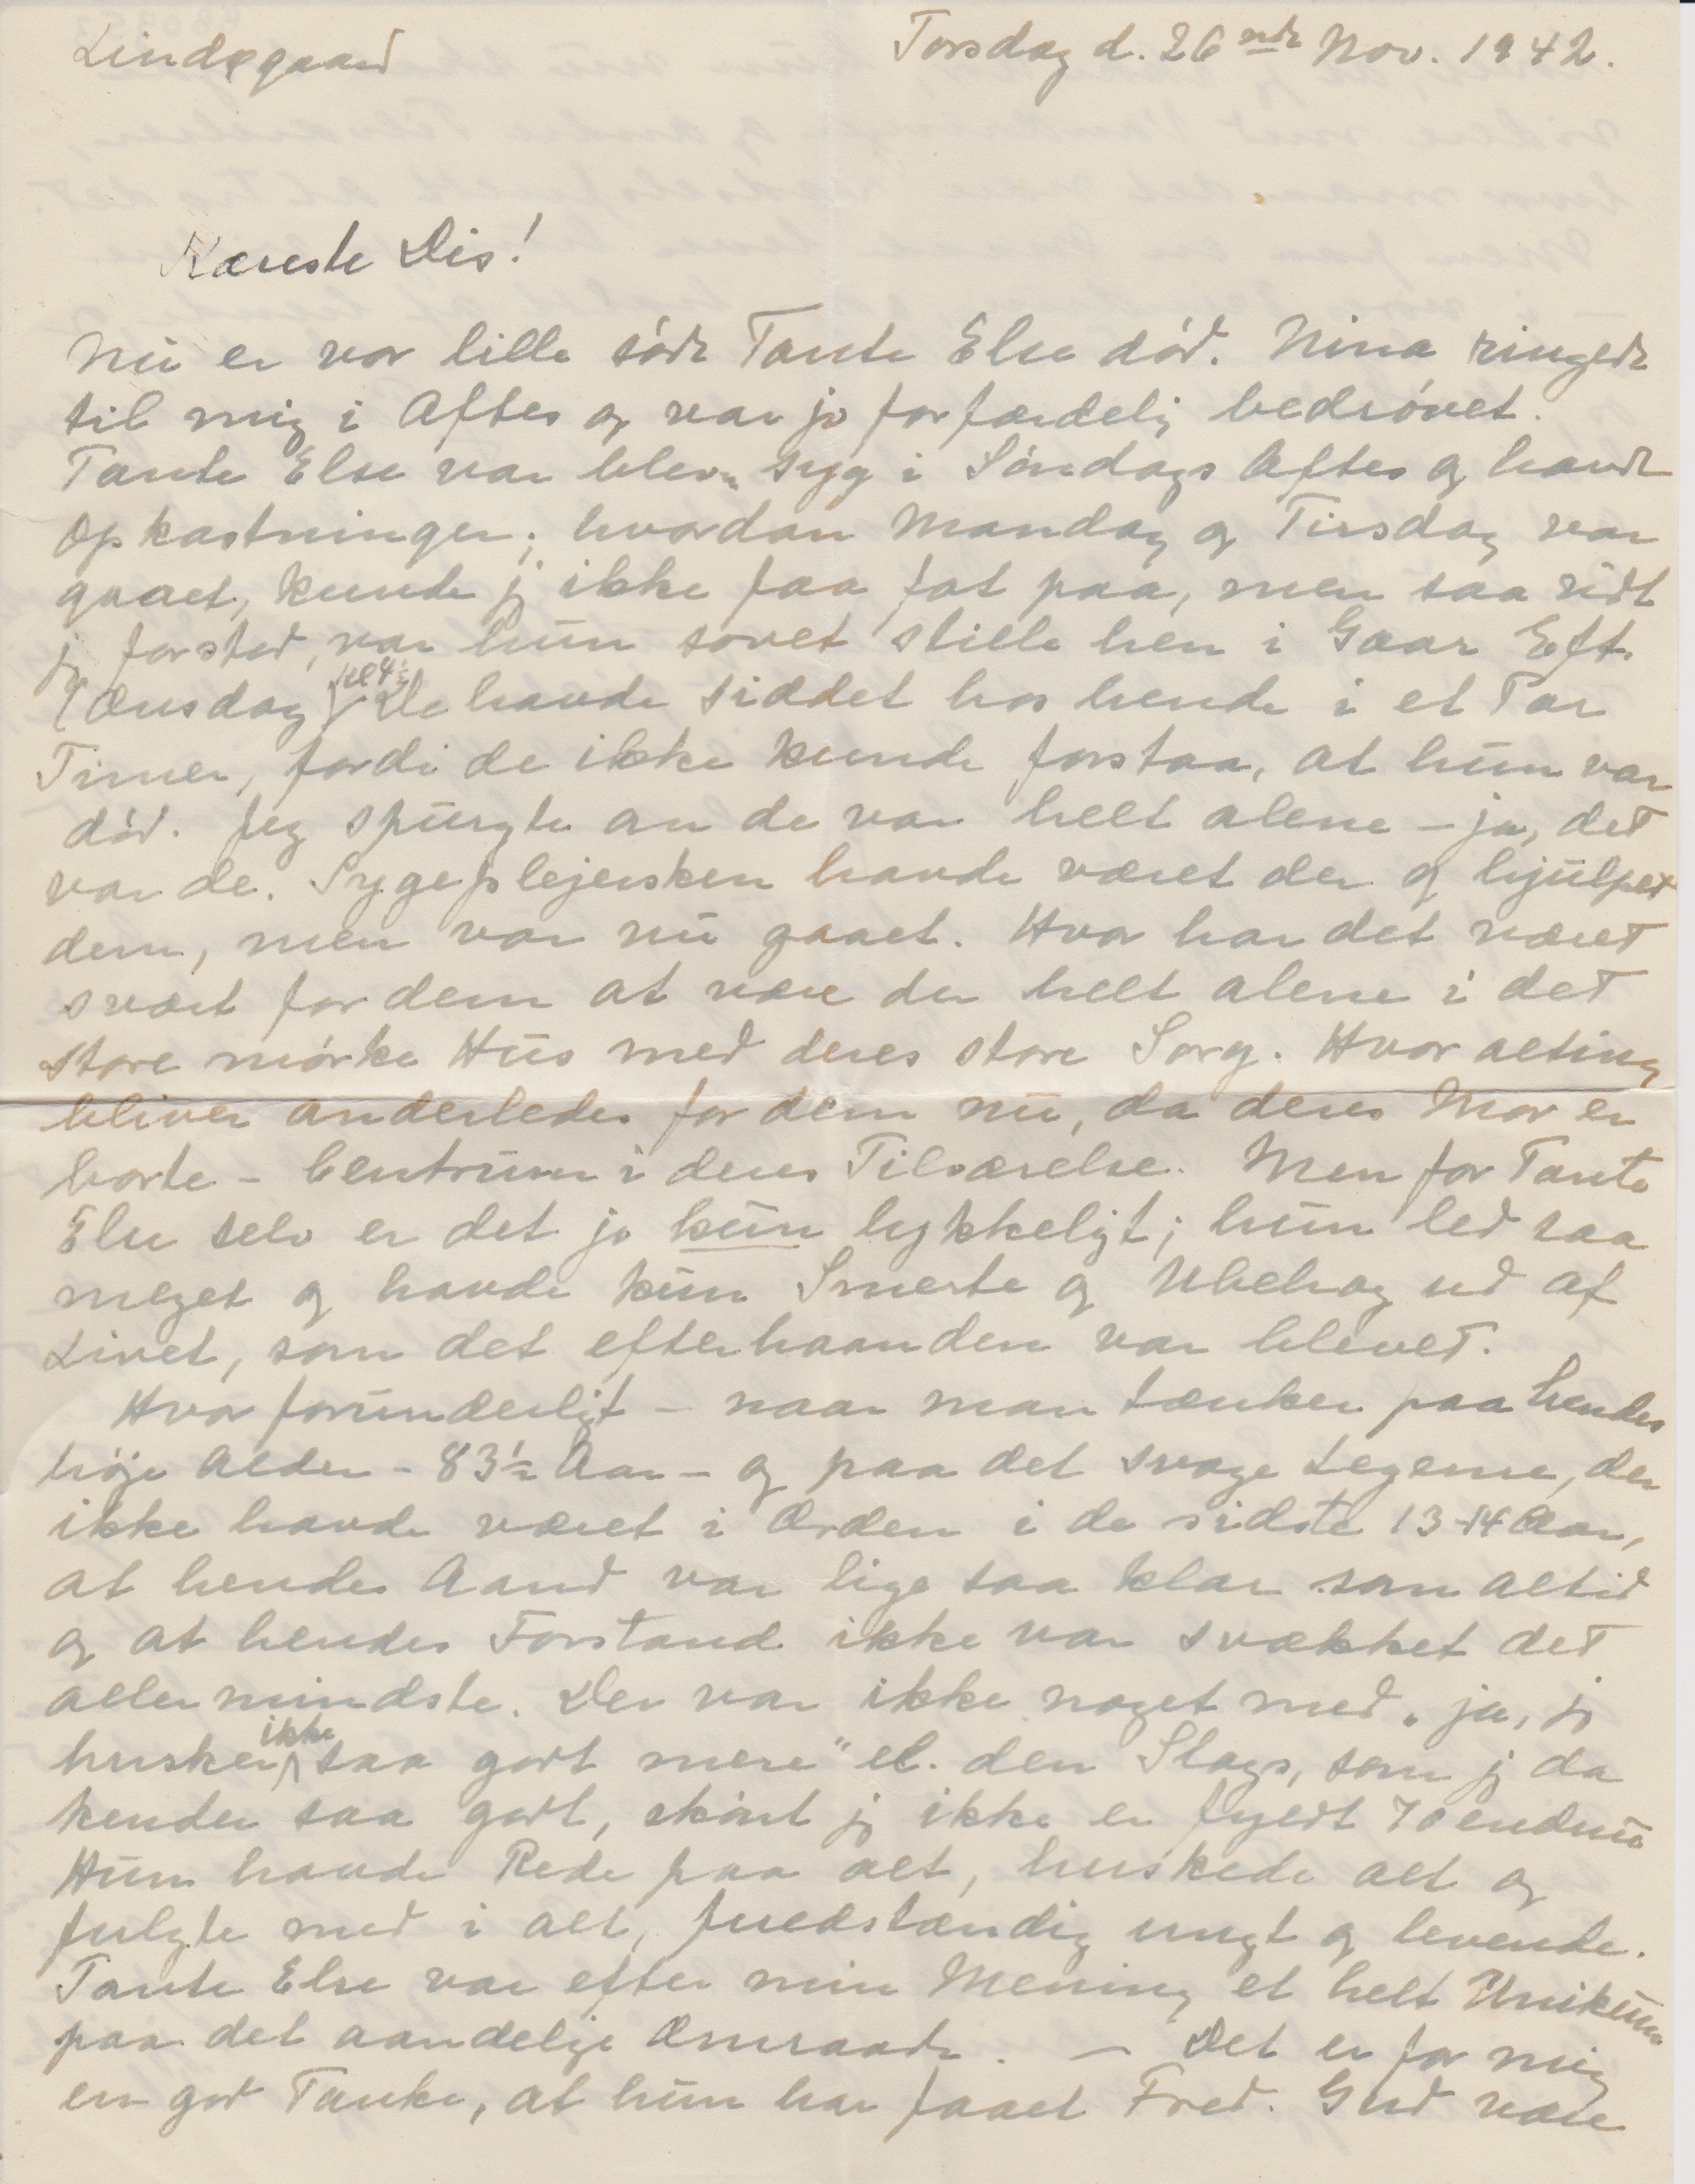 Lindøgaard
Torsdag d. 26nde Nov. 1942.
Kæreste Dis!
Nu er vor lille søde Tante Else død. Nina ringede
til mig i Aftes og var jo forfærdelig bedrøvet.
Tante Else var bleven syg i Søndags Aftes og havde
Opkastninger; hvordan Mandag og Tirsdag var
gaaet, kunde jg ikke faa fat paa, men saa vidt
jg forstod, var hun sovet stille hen i Gaar Eft.
(Onsdag) Kl 4½ De havde siddet hos hende i et Par
Timer, fordi de ikke kunde forstaa, at hun var
død. Jeg spurgte om de var helt alene – ja, det
var de. Sygeplejersken havde været der og hjulpet
dem, men var nu gaaet. Hvor har det været
svært for dem at være der helt alene i det
store mørke Hus med deres store Sorg. Hvor alting
bliver anderledes for dem nu, da deres Mor er
borte – Centrum i deres Tilværelse. Men for Tante
Else selv er det jo kun lykkeligt; hun led saa
meget og havde kun Smerte og Ubehag ud af
Livet, som det efterhaanden var blevet.
Hvor forunderligt – naar man tænker paa hendes
høje Alder – 83½ Aar – og paa det svage Legeme, der
ikke havde været i Orden i de sidste 13-14 Aar,
at hendes Aand var lige saa klar som altid
og at hendes Forstand ikke var svækket det
allermindste. Der var ikke noget med „ja, jg
husker ikke saa godt mere" el. den Slags, som jg da
kender saa godt, skønt jg ikke er fyldt 70 endnu
Hun havde Rede paa alt, huskede alt og
fulgte med i alt, fuldstændig ungt og levende.
Tante Else var efter min Mening et helt Unikum
paa det aandelige Omraade. – Det er for mig
en god Tanke, at hun har faaet Fred. Gud være